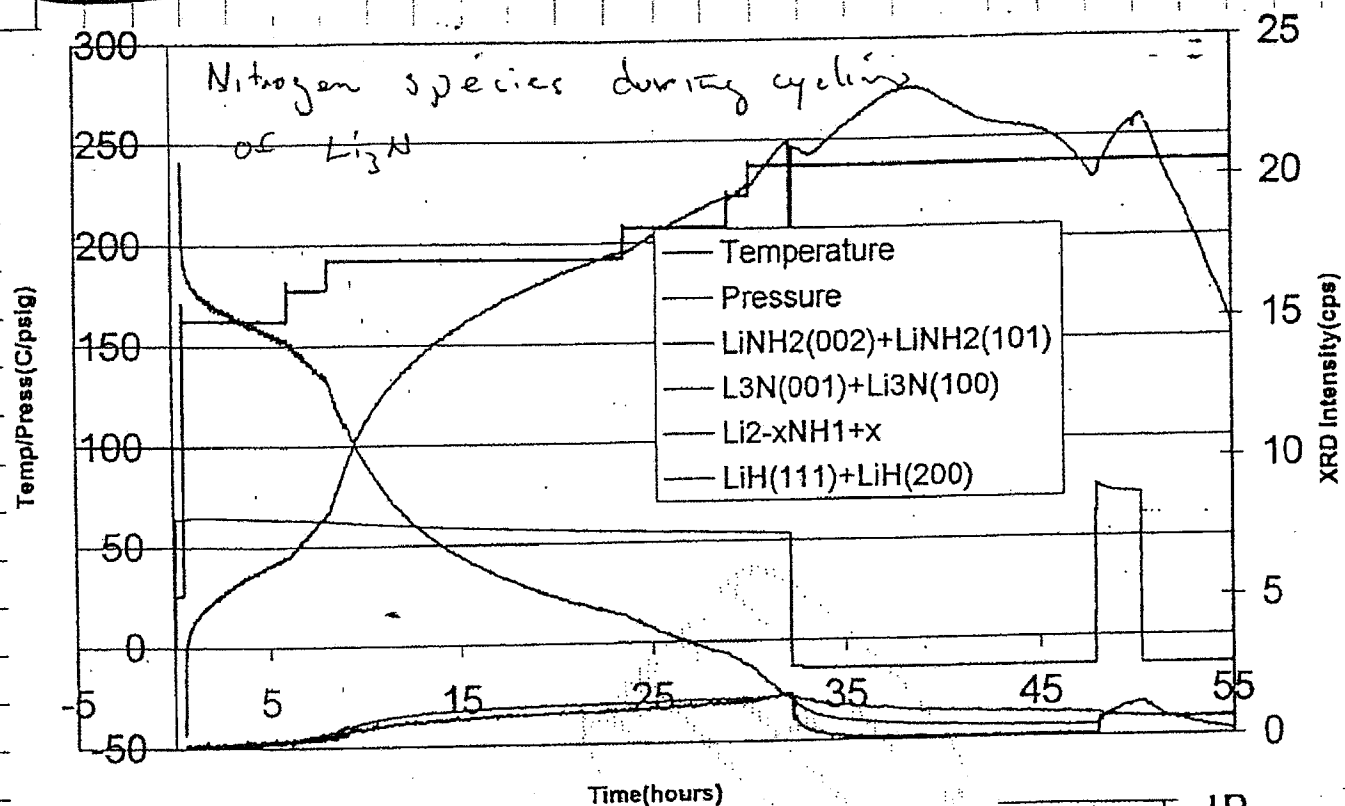 Nitrogen species during cycling
of Li3N
300
250
200
150
100
50
0
-50
Temp/Press(C/psig)
25
20
15
10
5
0
XRD Intensity(cps)
Temperature
Pressure
LiNH2(002)+LiNH2(101)
L3N(001)+Li3N(100)
Li2-xNH1+x
LiH(111)+LiH(200)
-5
5
15
25
35
45
55
Time(hours)